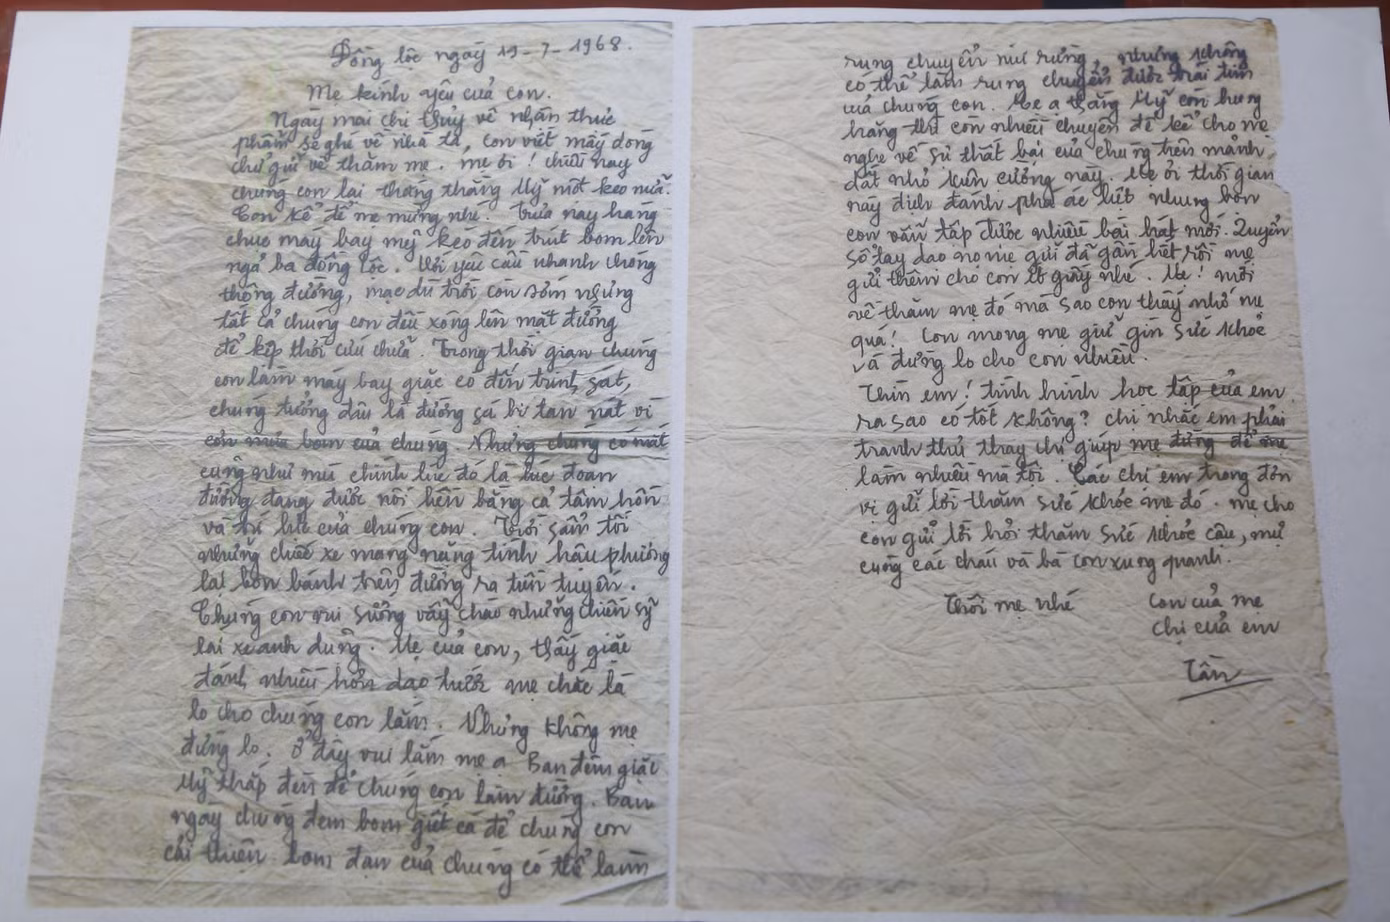 Đồng lộc ngày 19-7-1968.
Mẹ kính yêu của con.
Ngày mai chị Thủy về nhận thực
phẩm sẽ ghé về nhà ta, con viết mấy dòng
chữ gửi về thăm mẹ. mẹ ơi! chiều nay
chúng con lại thắng thằng Mỹ một keo nữa.
Con kể để mẹ mừng nhé. Trưa nay hàng
chục máy bay mỹ kéo đến trút bom lên
ngã ba đồng lộc. Với yêu cầu nhanh chóng
thông đường, mặc dù trời con sớm nhưng
tất cả chúng con đều xông lên mặt đường
để kịp thời cứu chữa. Trong thời gian chúng
con làm máy bay giặc có đến trinh sát,
chúng tưởng đâu là đường sá bị tan nát vì
cơn mưa bom của chúng. Nhưng chúng có mắt
cũng như mù chính lúc đó là lúc đoạn
đường đang được nối liền bằng cả tâm hồn
và trí lực của chúng con. Trời sẩm tối
những chiếc xe mang nặng tình hậu phương
lại bon bánh trên đường ra tiền tuyến.
Chúng con vui sướng vẫy chào những chiến sỹ
lái xe anh dũng. Mẹ của con, thấy giặc
đánh nhiều hơn dạo trước mẹ chắc là
lo cho chúng con lắm. Nhưng không mẹ
đừng lo. ở đây vui lắm mẹ ạ Ban đêm giặc
Mỹ thắp đèn để chúng con làm đường. Ban
ngày chúng đem bom giết cá để chúng con
cải thiện. bom đạn của chúng có thể làm
rung chuyển núi rừng, nhưng không
có thể làm rung chuyển được trái tim
của chúng con. Mẹ ạ thằng Mỹ còn hung
hăng thì còn nhiều chuyện để kể cho mẹ
nghe về sự thất bại của chúng trên mảnh
đất nhỏ kiên cường này. Mẹ ơi thời gian
này địch đánh phá ác liệt nhưng bọn
con vẫn tập được nhiều bài hát mới. Quyển
sổ tay dạo nọ mẹ gửi đã gần hết rồi mẹ
gửi thêm cho con ít giấy nhé. Mẹ! mới
về thăm mẹ đó mà sao con thấy nhớ mẹ
quá! Con mong mẹ giữ gìn sức khỏe
và đừng lo cho con nhiều.
Thìn em! tình hình học tập của em
ra sao có tốt không? chị nhắc em phải
tranh thủ thay chị giúp mẹ đừng để mẹ
làm nhiều mà tội. Các chị em trong đơn
vị gửi lời thăm sức khỏe mẹ đó. mẹ cho
con gửi lời hỏi thăm sức khỏe cậu, mự
cùng các cháu và bà con xung quanh.
Thôi mẹ nhé
Con của mẹ
Chị của em
Tần